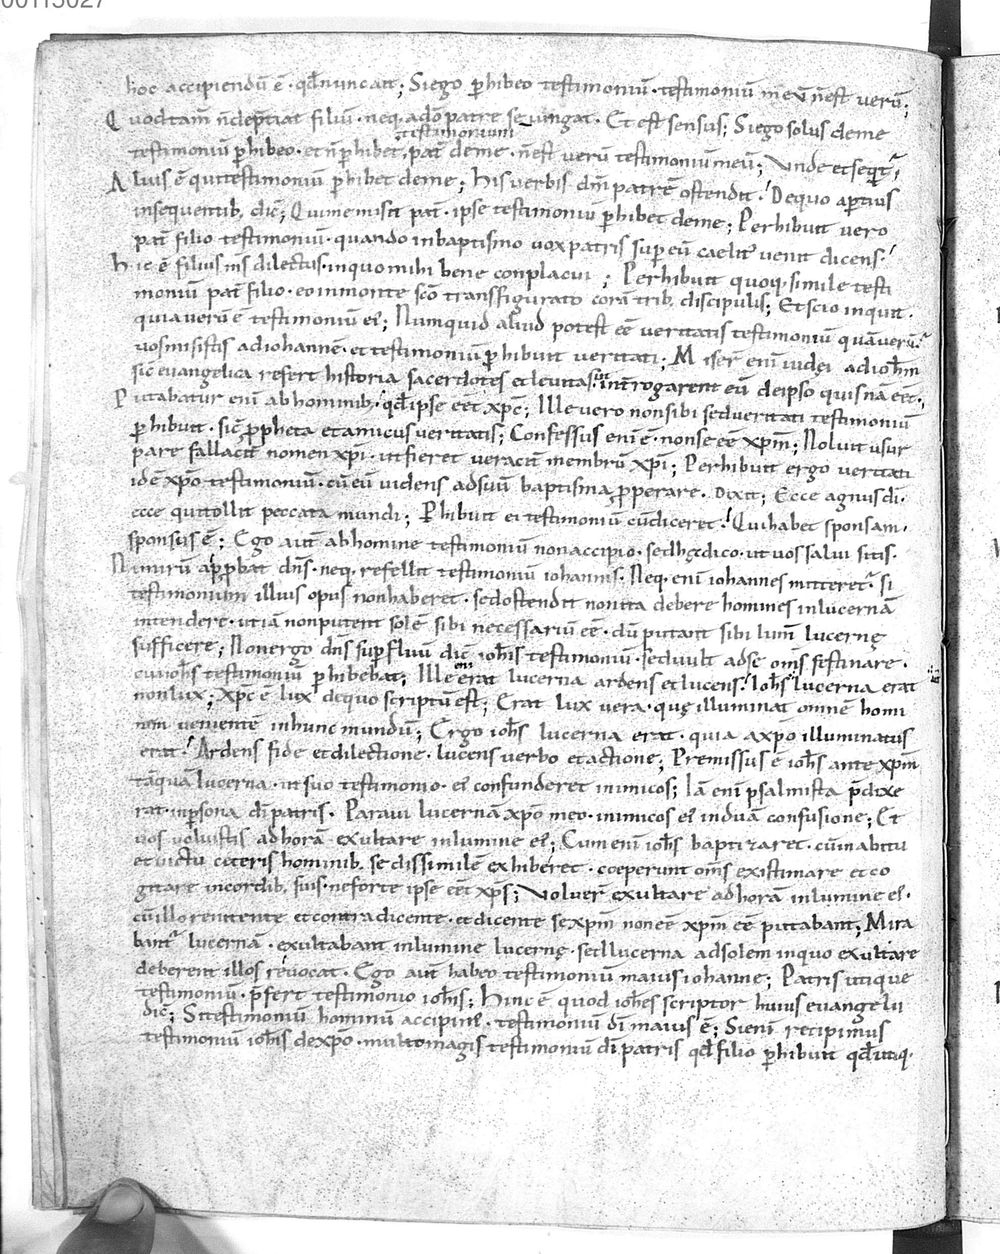 00113027
hoc accipiendū ē · qđ nunc ait; Si ego p̱hibeo testimoniū · testimoniū meū ñ est verū;
Quod tam̄ ñ decp̄tiat filiū · neq, a dō patre sevingat · Et est sensus; Si ego solus de me
testimonium
testimoniū p̱hibeo · et ñ p̱hibet, pat̄ de me · ñ est verū testimoniū meū; Vnde et seqt̄;
Alius ē qui testimoniū p̱hibet de me; His verbis dm̄ patrē ostendit! De quo ap̱tius
in sequentib, dic̄; Qui me misit pat̄ · ipse testimoniū p̱hibet de me; Perhibuit vero
pat̄ filio testimoniū · quando in baptismo vox patris sup̱ eū caelit᾽ venit dicens!
Hic ē filius m̄s dilectus · in quo mihi bene conplacui; Perhibuit quoq, simile testi
moniū pat̄ filio · eo in monte sc̄o transfigurato corā trib, discipulis; Et scio inquit ·
quia verū ē testimoniū ei᾽; Numquid aliud potest eē veritatis testimoniū quā verū?
vos misistis ad iohannē · et testimoniū p̱hibuit veritati; Miser̄ enī iudei ad ioh̄m
sic̄ evangelica refert historia sacerdotes et levitas · ut int̄rogarent eū de ipso quisnā eēt;
Putabatur enī ab hominib, qđ ipse eēt xp̄c; Ille vero non sibi sed veritati testimoniū
p̱hibuit · sic̄ p̱pheta et amicus veritatis; Confessus enī ē · non se eē xpm̄; Noluit usur
pare fallacit̄ nomen xp̄i · ut fieret veracit̄ membrū xp̄i; Perhibuit ergo veritati
idē xp̄o testimoniū · cū eū videns ad suū baptisma p̱perare · dixit; Ecce agnus dī ·
ecce qui tollit peccata mundi; P̱hibuit ei testimoniū cū diceret! Qui habet sponsam ·
sponsus ē; Ego aut̄ ab homine testimoniū non accipio · sed hęc dico · ut vos salvi sitis ·
Nimirū app̱bat dn̄s · neq, refellit testimoniū iohannis · Neq, enī iohannes mitteret᾽ · si
testimonium illius opus non haberet · sed ostendit non ita debere homines in lucernā
intendere · ut iā non putent solē sibi necessariū eē · dū putant sibi lum̄ lucernę
sufficere; Non ergo dn̄s sup̱fluū dic̄ ioh̄is testimoniū · sed vult ad se om̄s festinare ·
cui ioh̄s testimoniū p̱hibebat; Ille erat lucerna ardens et lucens! Ioh̄s lucerna erat
non lux; Xp̄c ē lux de quo scriptū est; Erat lux vera · quę illuminat omnē homi
nem venientē in hunc mundū; Ergo ioh̄s lucerna erat · quia a xp̄o illuminatus
erat! Ardens fide et dilectione · lucens verbo et actione; Premissus ē ioh̄s ante xpm̄
tāquā lucerna · ut suo testimonio · ei᾽ confunderet inimicos; Iā enī psalmista p̄dixe
rat · in p̱sona dī patris · Paravi lucernā xp̄o meo · inimicos ei᾽ induā confusione; Et
vos voluistis ad horā exultare in lumine ei᾽; Cum enī ioh̄s baptizaret · cū in abitu
et victu ceteris hominib, se dissimilē exhiberet · coeperunt om̄s existimare et co
gitare in cordib, suis · ne forte ipse eēt xp̄s; Voluer̄ exultare ad horā in lumine ei᾽ ·
cū illo renitente et contradicente · et dicente se xpm̄ non eē xpm̄ eē putabant; Mira
bant᾽ lucernā · exultabant in lumine lucernę · sed lucerna ad solem in quo exultare
deberent illos revocat · Ego aut̄ habeo testimoniū maius iohanne; Patris utique
testimoniū · p̄fert testimonio ioh̄is; Hinc ē quod ioh̄es scriptor huius evangelii
dic̄; Si testimoniū hominū accipim᾽ · testimoniū dī maius ē; Si enī recipimus
testimoniū ioh̄is de xp̄o · multo magis testimoniū dī patris qđ filio p̱hibuit qđ utiq,